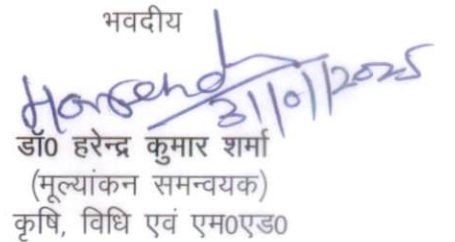 भवदीय
Harendra
31/01/2025
डॉ0 हरेन्द्र कुमार शर्मा
(मूल्यांकन समन्वयक)
कृषि, विधि एवं एम0एड0